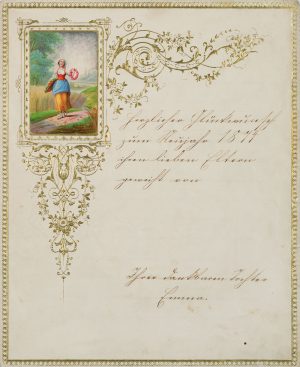 Herzlicher Glückwunsch
zum Neujahr 1877
ihren lieben Eltern
geweiht von
Ihrer dankbaren Tochter
Emma.